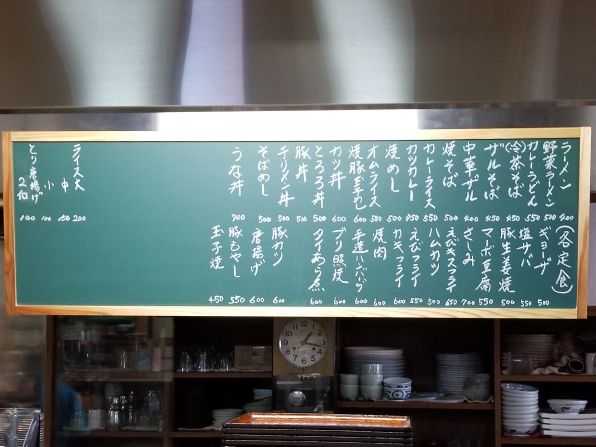 ラーメン 400
野菜ラーメン 500
カレーうどん 550
(冷)茶そば 500
ザルそば 450
中華ザル 450
焼そば 400
カレーライス 550
カツカレー 850
焼めし 500
オムライス 550
焼豚玉子めし 600
カツ丼 600
とろろ丼 500
豚丼 510
チリメン丼 500
そばめし 500
うな丼 900
ライス大 200
中 150
小 100
とり唐揚げ
2個 100
(各定食)
ギョーザ 500
塩サバ 500
豚生姜焼 550
マーボ豆腐 550
さしみ 700
えびキスフライ 650
ハムカツ 500
えびフライ 550
カキフライ 600
焼肉 600
手造ハンバーグ 600
ブリ照焼 600
タイあら煮 600
豚カツ 600
唐揚げ 600
豚もやし 550
玉子焼 450